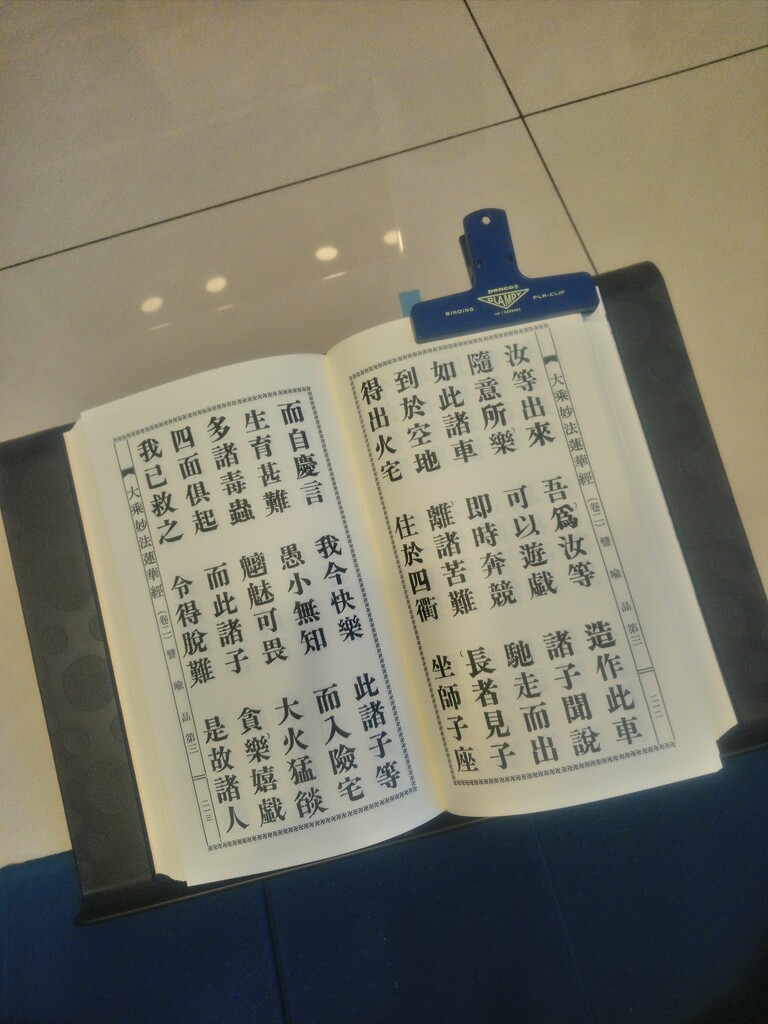 penco®
CLAMPY
BINDING PLA-CLIP
大乘妙法蓮華經 (卷二) 譬喻品第三 二二二
汝等出來 吾為汝等 造作此車
隨意所樂 可以遊戲 諸子聞說
如此諸車 即時奔競 馳走而出
到於空地 離諸苦難 長者見子
得出火宅 住於四衢 坐師子座
而自慶言 我今快樂 此諸子等
生育甚難 愚小無知 而入險宅
多諸毒蟲 魑魅可畏 大火猛燄
四面俱起 而此諸子 貪樂嬉戲
我已救之 令得脫難 是故諸人
大乘妙法蓮華經 (卷二) 譬喻品第三 二二三